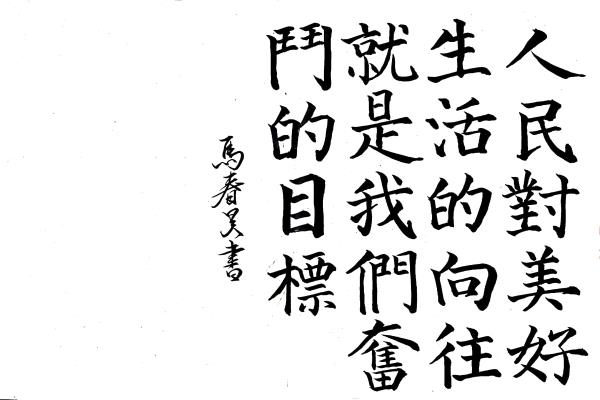 人民對美好
生活的向往
就是我們奮
鬥的目標
馬春昊書